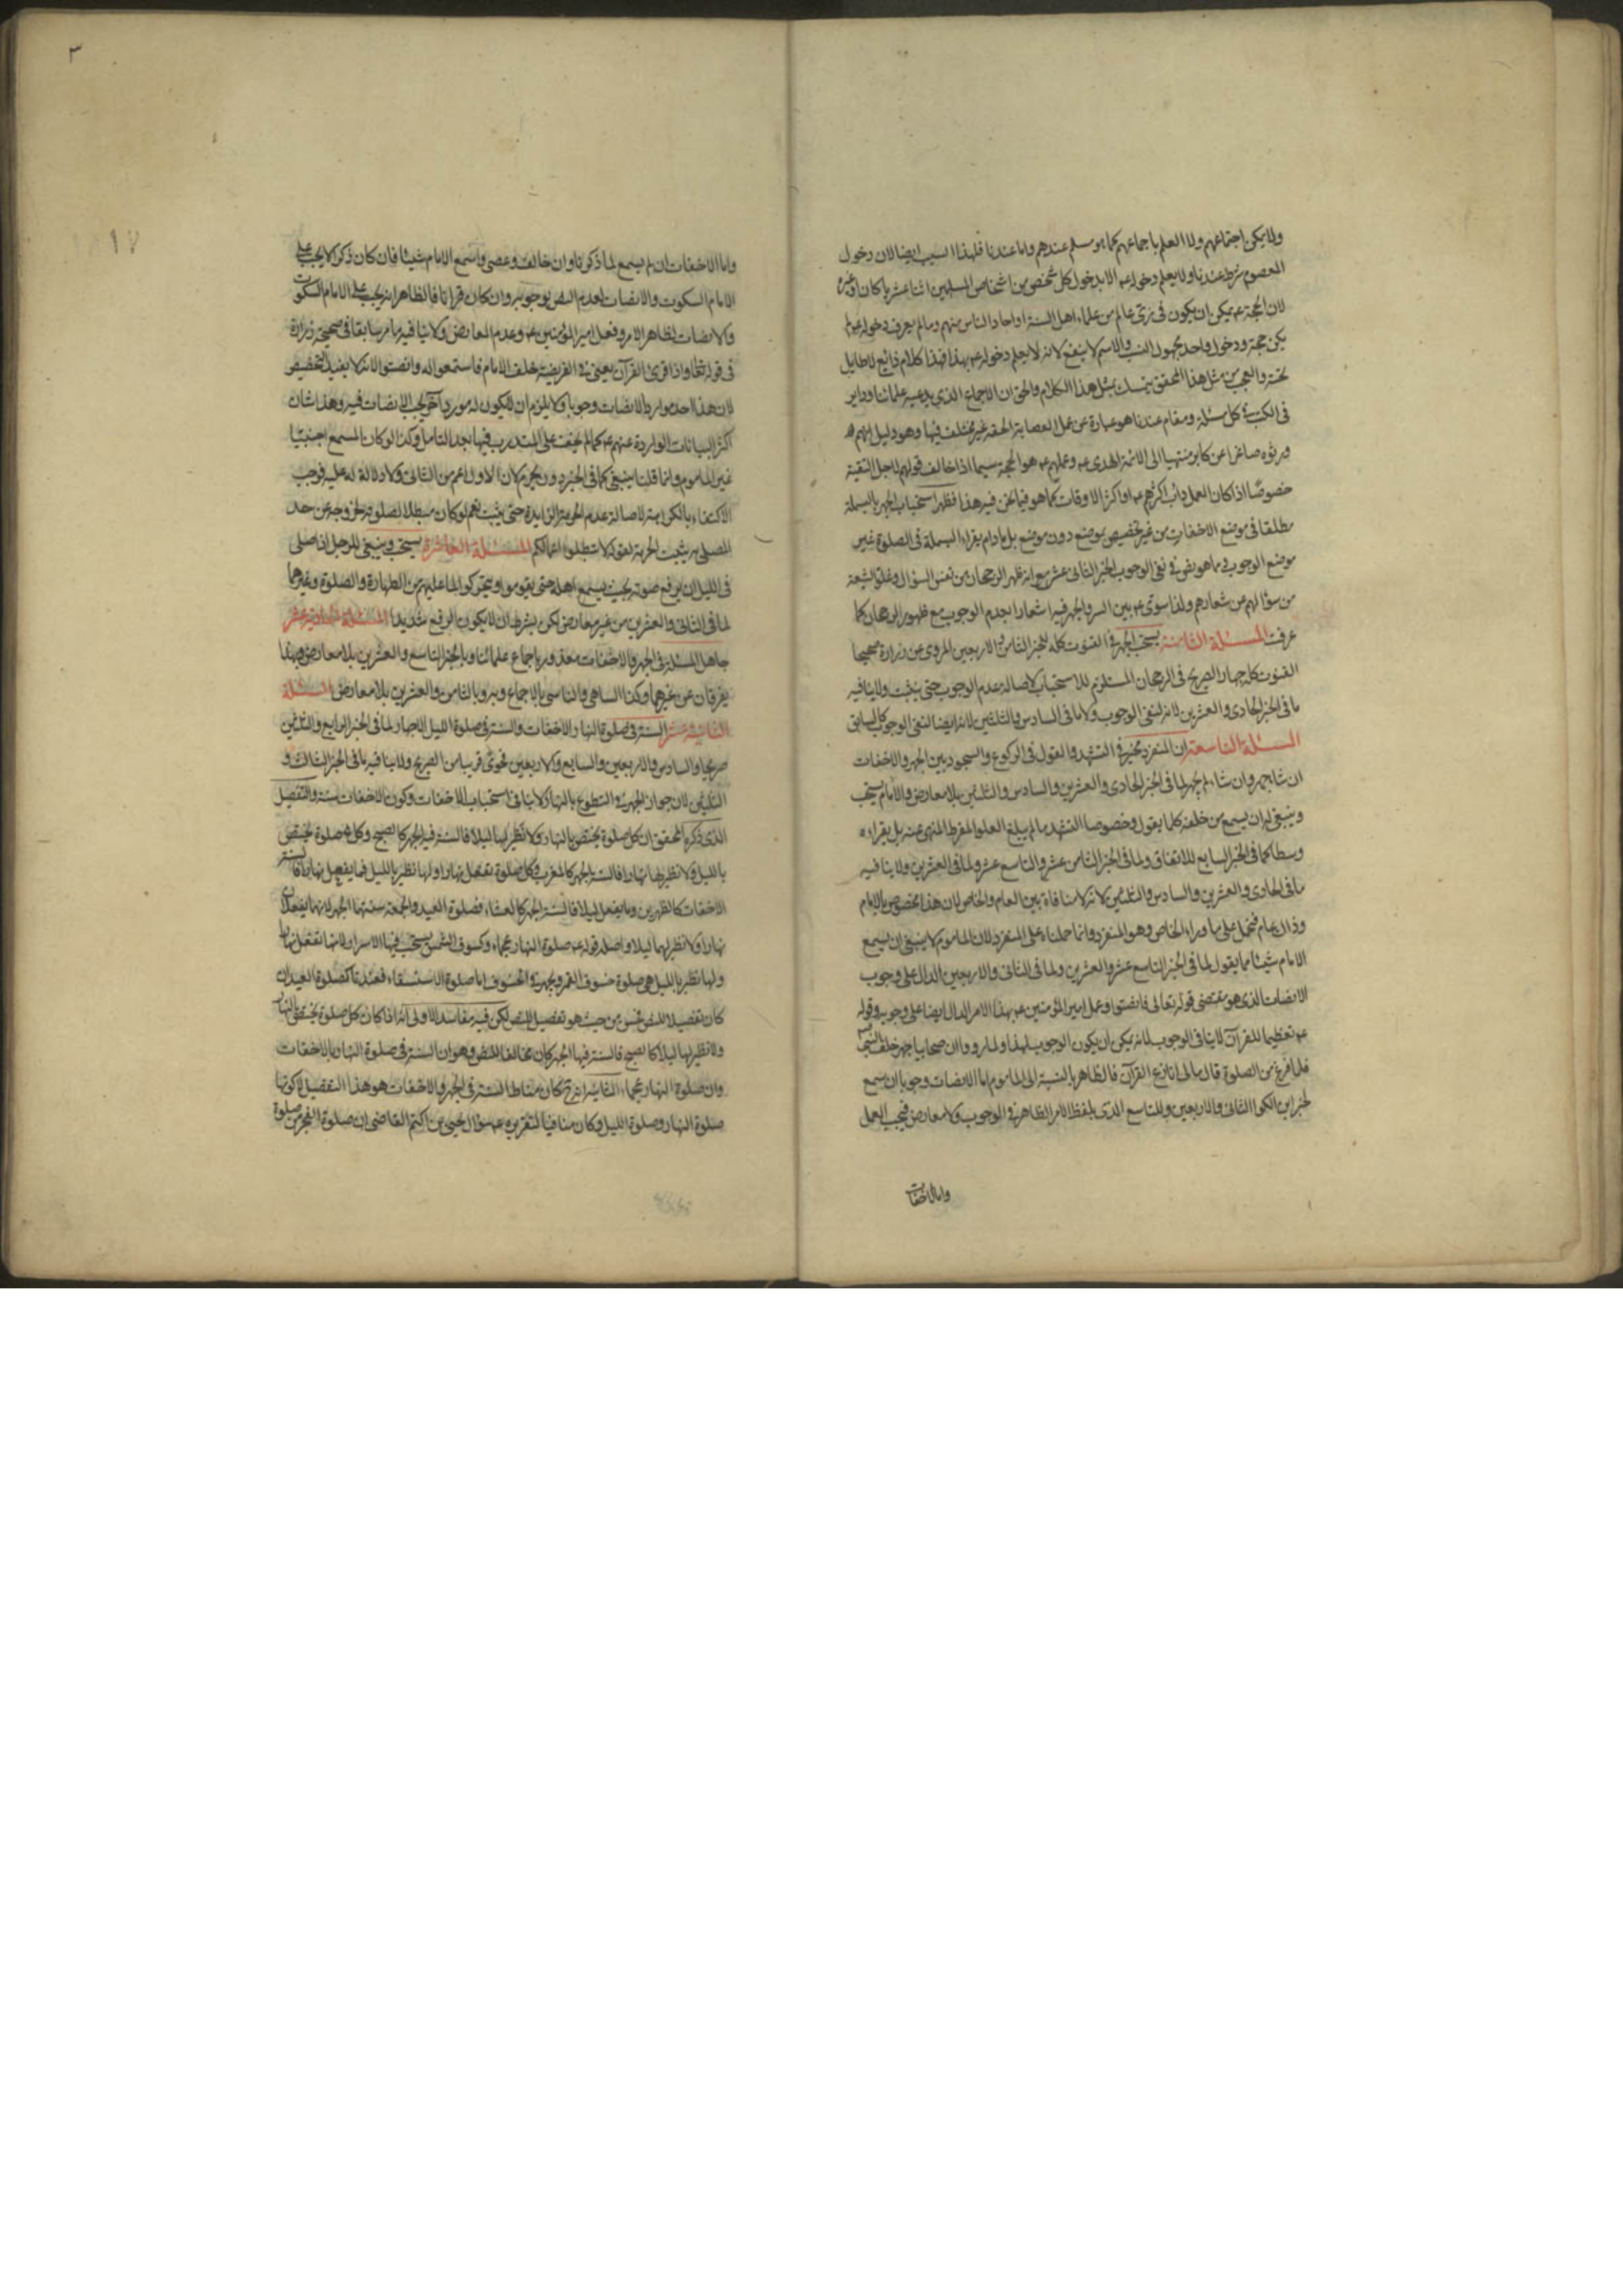 ولا يمكن اجتماعهم ولا العلم باجماعهم كما هو مسلم عندهم واما عندنا فلهذا السبب ايضا لان دخول
المعصوم شرط عندنا ولا يعلم دخوله عم الا بدخول كل شخص من اشخاص المسلمين اثنا عشريا كان او غيره
لان الحجة عم يمكن ان يكون في زي عالم من علماء اهل السنة او احاد الناس منهم وما لم يعرف دخوله عم لم
يكن حجة ودخول واحد مجهول النسب والاسم لا ينفع لانه لا يعلم دخوله عم بهذا فهذا كلام ضايع لا طايل
تحته والعجب من مثل هذا المحقق يتمسك بمثل هذا الكلام والحق ان الاجماع الذي يدعيه علمائنا وداير
في الكتب في كل مسئلة ومقام عندنا هو عبارة عن عمل العصابة المحقة غير مختلف فيها وهو دليل لهم
ورثوه صاغرا عن كابر منتهيا الى الائمة الهدى عم وعملهم عم هو الحجة سيما اذا خالف قولهم لاجل التقية
خصوصًا اذا كان العمل دائب اكثرهم عم او اكثر الاوقات كما هو فيما نحن فيه هذا فظهر استحباب الجهر بالبسملة
مطلقا في موضع الاخفات من غير تخصيص بموضع دون موضع بل ما دام يقراء البسملة في الصلوة غير
موضع الوجوب في ما هو نص في نفي الوجوب الخبر الثاني عشر مع انه ظهر الرجحان من نفس السؤال وغلق الشيعة
من سؤالهم عن شعارهم ولذا سوى عم بين السر والجهر فيه اشعارا بعدم الوجوب مع ظهور الرجحان كما
عرفت المسئلة الثامنة يستحب الجهر في القنوت كله للخبر الثامن والاربعين المروي عن زرارة صحيحا
القنوت كله جهار الصريح في الرجحان المستلزم للاستحباب لاصالة عدم الوجوب حتى يثبت ولا ينافيه
ما في الخبر الحادي والعشرين لانه لنفي الوجوب ولا ما في السادس والثلثين لانه ايضا لنفي الوجوب كالسابق
المسئلة التاسعة ان المنفرد مخير في التشهد والقول في الركوع والسجود بين الجهر والاخفات
ان شاء جهر وان شاء لم يجهر لما في الخبر الحادي والعشرين والسادس والثلثين بلا معارض والامام يستحب
وينبغي له ان يسمع من خلفه كلما يقول وخصوصا التشهد ما لم يبلغ العلو المفرط المنهي عنه بل يقراءه
وسطا كما في الخبر السابع للاتفاق ولما في الخبر الثامن عشر والتاسع عشر ولما في العشرين ولا ينافيه
ما في الحادي والعشرين والسادس والثلثين لانه لا منافاة بين العام والخاص لان هذا مخصوص بالامام
وذاك عام فتحمل على ما وراء الخاص وهو المنفرد وانما حملناه على المنفرد لان الماموم لا ينبغي ان يسمع
الامام شيئا مما يقول لما في الخبر التاسع عشر والعشرين ولما في الثاني والاربعين الدال على وجوب
الانصات الذي هو مقتضى قوله تعالى فانصتوا وعمل امير المؤمنين عم بهذا الامر الدال ايضا على وجوبه وقوله
عم تعظيما للقرآن لا ينافي الوجوب لانه يمكن ان يكون الوجوب لهذا ولما رووا ان صحابيا جهر خلف النبي
فلما فرغ من الصلوة قال مالي انازع القرآن فالظاهر بالنسبة الى الماموم اما الانصات وجوبا ان سمع
لخبر ابن الكوا الثاني والاربعين وللتاسع الذي بلفظ الامر الظاهر في الوجوب ولا معارض فيجب العمل
واما الاخفات
٣
واما الاخفات ان لم يسمع لما ذكرنا وان خالف وعصى واسمع الامام شيئا فان كان ذكرا لا يجب على
الامام السكوت والانصات لعدم النص بوجوبه وان كان قرانا فالظاهر انه يجب على الامام السكوت
والانصات لظاهر الامر وفعل امير المؤمنين عم وعدم المعارض ولا ينافيه ما مر سابقا في صحيحة زرارة
في قوله تعالى واذا قرئ القرآن يعني في الفريضة خلف الامام فاستمعوا له وانصتوا لانه لا يفيد التخصيص
لان هذا احد موارد الانصات وجوبا ولا يلزم ان لا يكون له مورد آخر يجب الانصات فيه وهذا شان
اكثر البيانات الواردة عنهم عم كما لم يخف على المتدرب فيها بعد التامل وكذا لو كان المسمع اجنبيا
غير الماموم وانما قلنا ينبغي كما في الخبر دون يحرم لان الاول اعم من الثاني ولا دلالة له عليه فوجب
الاكتفاء بالكراهة لاصالة عدم الحرمة الزايدة حتى يثبت نعم لو كان مبطلا لصلوته لخروجه عن حد
المصلي به يثبت الحرمة لقوله لا تبطلوا اعمالكم المسئلة العاشرة يستحب وينبغي للرجل اذا صلى
في الليل ان يرفع صوته بحيث يسمع اهله حتى يقوموا ويتحركوا لما عليهم من الطهارة والصلوة وغيرهما
لما في الثاني والعشرين من غير معارض لكن بشرط ان لا يكون الرفع شديدا المسئلة الحادية عشر
جاهل المسئلة في الجهر والاخفات معذور باجماع علمائنا وبالخبر التاسع والعشرين بلا معارض وبهذا
يفرقان عن غيرهما وكذا الساهي والناسي بالاجماع وبه وبالثامن والعشرين بلا معارض المسئلة
الثانية عشر السنة في صلوة النهار الاخفات والسنة في صلوة الليل الاجهار لما في الخبر الرابع والثلثين
صريحا والسادس والاربعين والسابع والاربعين فحوى قريبا من الصريح ولا ينافيه ما في الخبر الثالث و
الثلثين لان جواز الجهر في التطوع بالنهار لا ينافي استحباب الاخفات وكون الاخفات سنة والتفصيل
الذي ذكره المحقق ان كل صلوة يختص بالنهار ولا نظير لها ليلا فالسنة فيه الجهر كالصبح وكل صلوة يختص
بالليل ولا نظير لها نهارا فالسنة الجهر كالمغرب وكل صلوة تفعل نهارا ولها نظير بالليل فما يفعل نهارا فالسنة
الاخفات كالظهرين وما يفعل ليلا فالسنة الجهر كالعشاء فصلوة العيد والجمعة سنتهما الجهر لانهما يفعلان
نهارا ولا نظير لهما ليلا واصله قوله عم صلوة النهار عجماء وكسوف الشمس يستحب فيها الاسرار لانها تفعل نهارا
ولها نظير بالليل هي صلوة خسوف القمر ويجهر في الخسوف اما صلوة الاستسقاء فعندنا كصلوة العيد ان
كان تفصيلا للنص فحسن من حيث هو تفصيل للنص لكن فيه مفاسد الاولى انه اذا كان كل صلوة يختص بالنهار
ولا نظير لها ليلا كالصبح فالسنة فيها الجهر كان مخالفا للنص وهو ان السنة في صلوة النهار بالاخفات
وان صلوة النهار عجماء الثانية انه ح كان مناط السنة في الجهر والاخفات هو هذا التفصيل لا كونها
صلوة النهار وصلوة الليل وكان منافيا لتقريره عم سؤال يحيى بن اكثم القاضي ان صلوة الفجر من صلوة